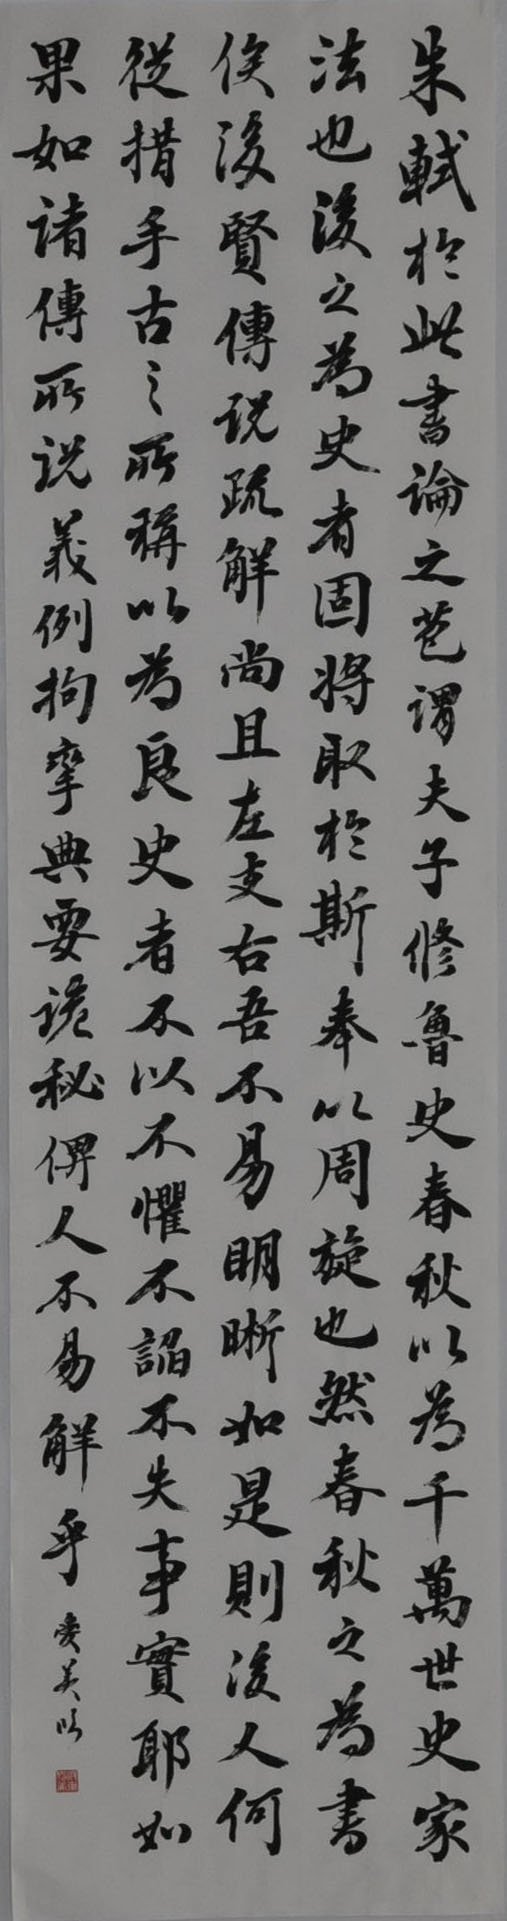 朱軾於此書論之甚詳謂夫子修魯史春秋以為千萬世史家
法也後之為史者固將取於斯奉以周旋也然春秋之為書
俟後賢傳說疏解尚且左支右吾不易明晰如是則後人何
從措手古之所稱以為良史者不以不懼不諂不失事實耶如
果如諸傳所說義例拘攣典要詭秘俾人不易解乎